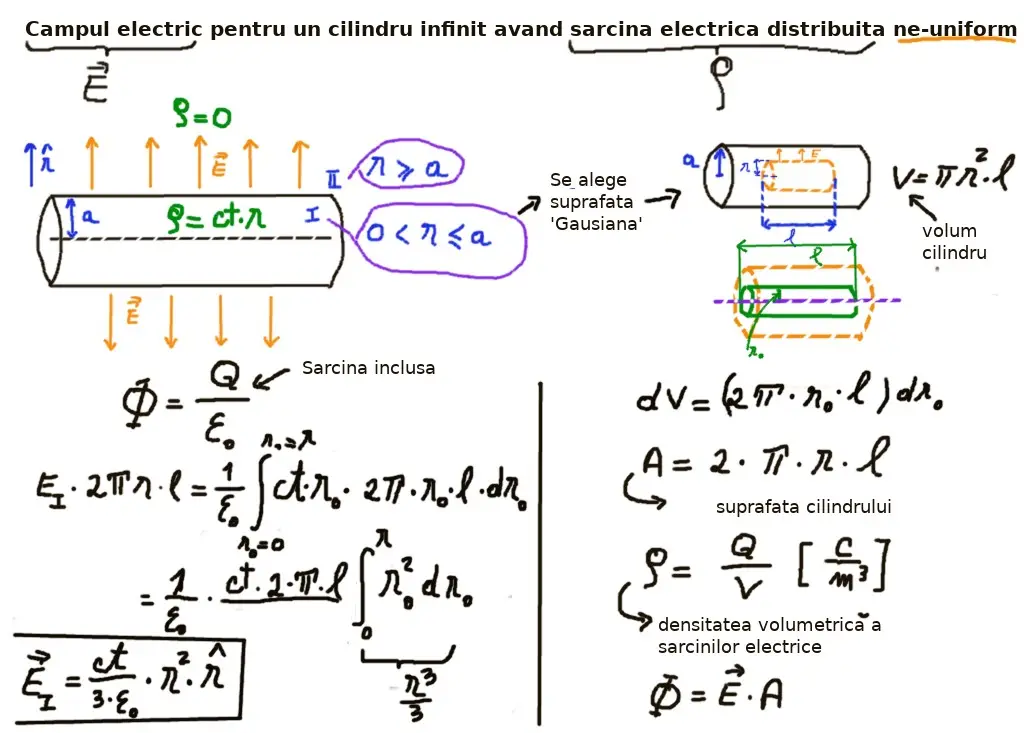 Campul electric pentru un cilindru infinit avand sarcina electrica distribuita ne-uniform
E⃗
ρ
ρ=0
r̂
E⃗
II
r ⩾ a
a
ρ= ct·r
I
0 < r ≤ a
E⃗
Se alege
suprafata
'Gausiana'
a
r
E
l
V= πr²·l
volum
cilindru
l
r₀
Φ = Q/ε₀
Sarcina inclusa
E_I · 2πr·l = 1/ε₀ ∫_{r₀=0}^{r₀=r} ct·r₀ · 2π·r₀·l·dr₀
= 1/ε₀ · ct·2·π·l ∫_0^r r₀² dr₀
r³/3
E⃗_I = ct/3·ε₀ · r²·r̂
dV = (2π·r₀·l)dr₀
A = 2·π·r·l
suprafata cilindrului
ρ = Q/V [C/m³]
densitatea volumetrică a
sarcinilor electrice
Φ = E⃗·A